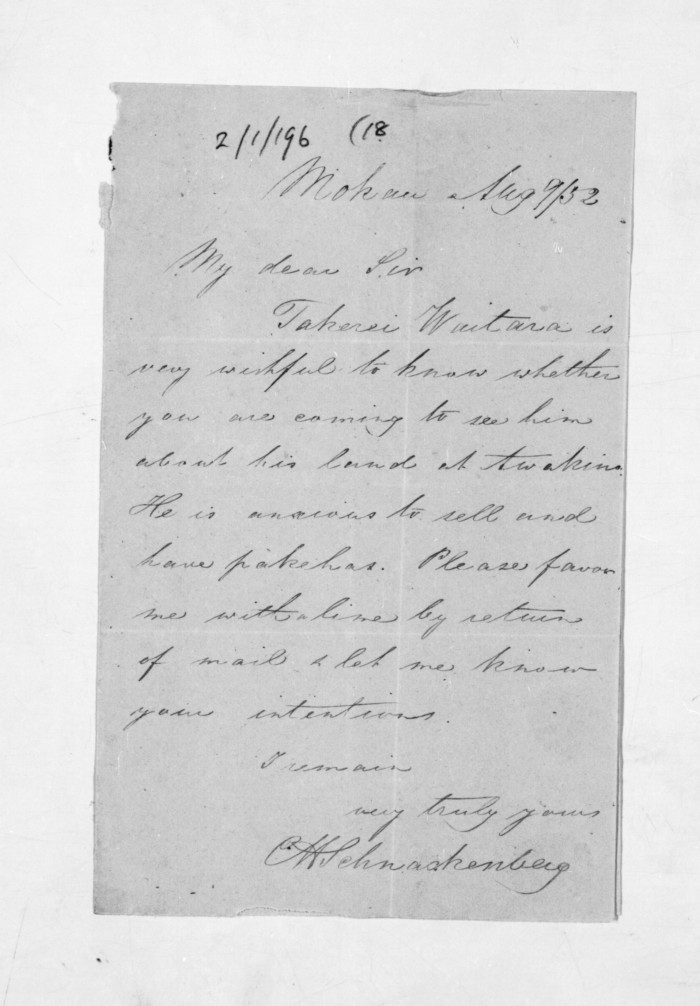 2/1/196 (18
Mokau Aug 9/52
My dear Sir
Takerei Waitara is
very wishful to know whether
you are coming to see him
about his land at Awakino.
He is anxious to sell and
have pakehas. Please favour
me with a line by return
of mail & let me know
your intentions.
I remain
very truly yours
CHSchnackenberg